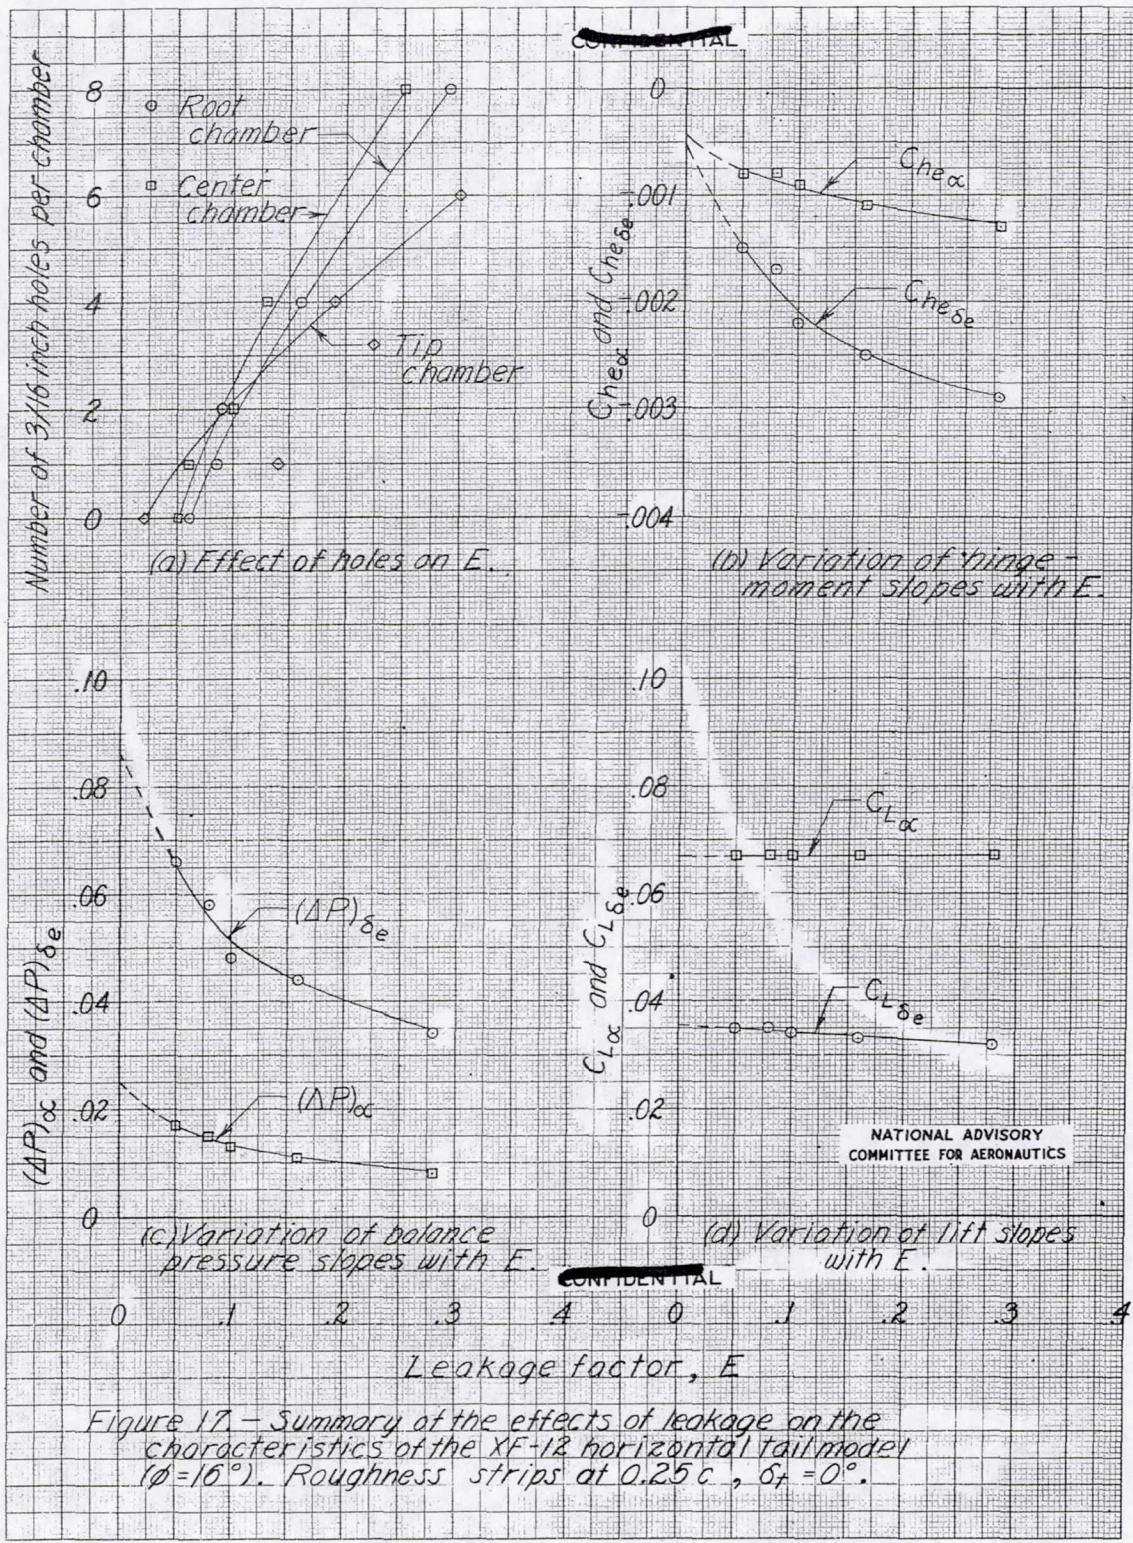 CONFIDENTIAL
Number of 3/16 inch holes per chamber
8
6
4
2
0
Root
chamber
Center
chamber
Tip
chamber
(a) Effect of holes on E.
Che∝ and Cheδe
0
-.001
-.002
-.003
-.004
Che∝
Cheδe
(b) Variation of hinge-
moment slopes with E.
(ΔP)∝ and (ΔP)δe
.10
.08
.06
.04
.02
0
(ΔP)δe
(ΔP)∝
(c) Variation of balance
pressure slopes with E.
CL∝ and CLδe
.10
.08
.06
.04
.02
0
CL∝
CLδe
NATIONAL ADVISORY
COMMITTEE FOR AERONAUTICS
(d) Variation of lift slopes
with E.
CONFIDENTIAL
0 .1 .2 .3 .4 0 .1 .2 .3 .4
Leakage factor, E
Figure 17.- Summary of the effects of leakage on the
characteristics of the XF-12 horizontal tail model
(ø=16°). Roughness strips at 0.25c, δt =0°.